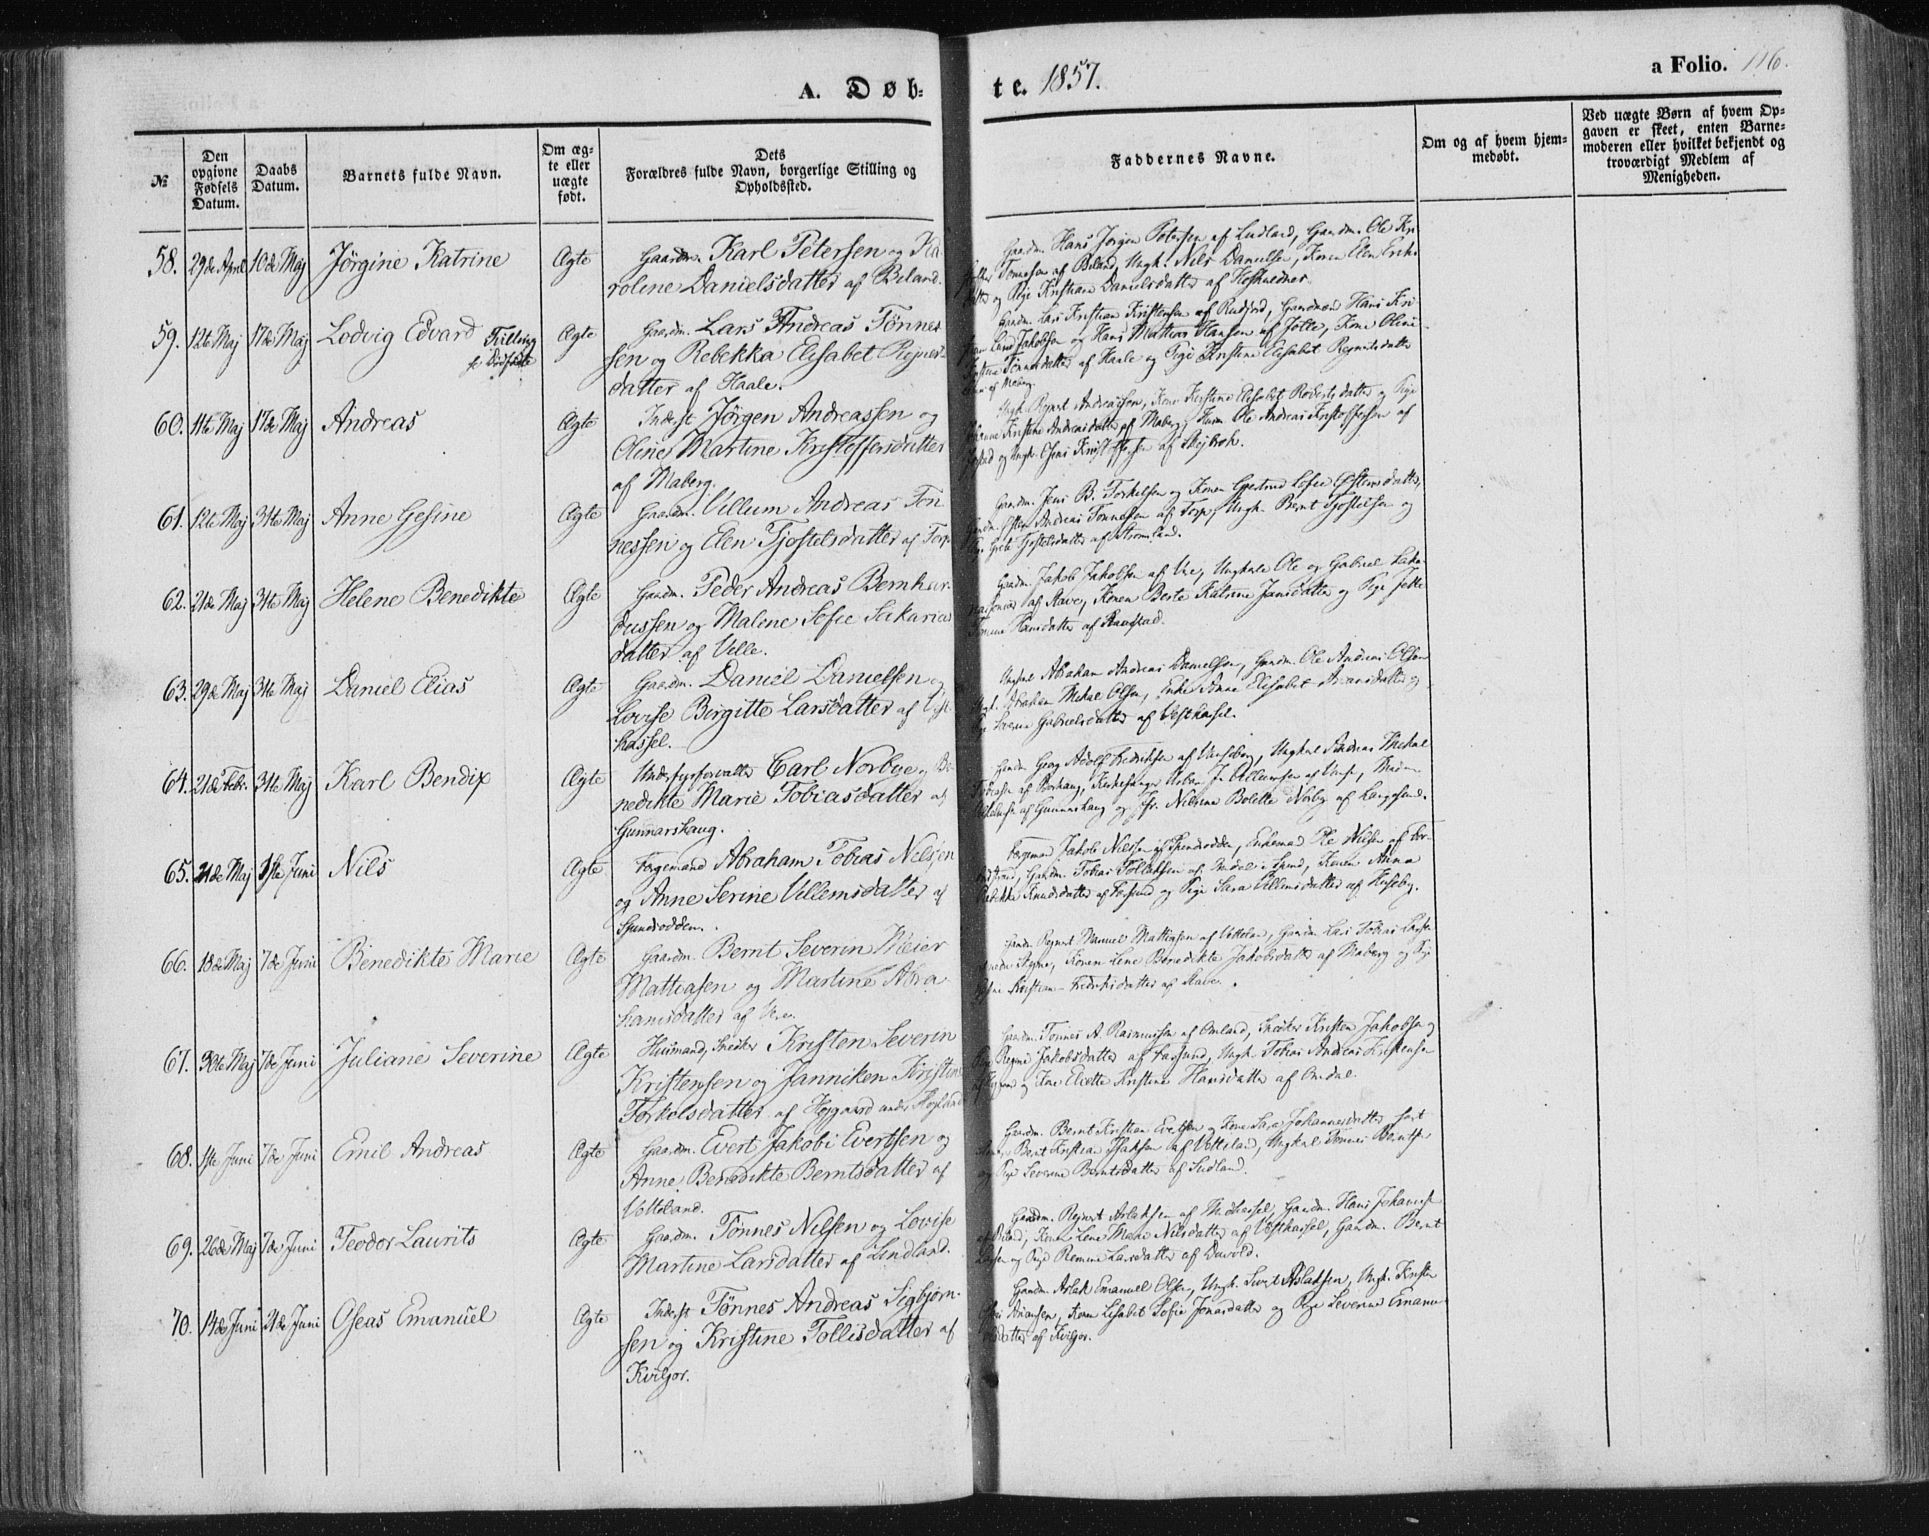 A. Døb-
te. 1857.
a Folio. 116.
№
Den opgivne Fødsels Datum.
Daabs Datum.
Barnets fulde Navn.
Om ægte eller uægte født.
Dets Forældres fulde Navn, borgerlige Stilling og Opholdssted.
Faddernes Navne.
Om og af hvem hjemmedøbt.
Ved uægte Børn af hvem Opgaven er skeet, enten Barnemoderen eller hvilket bekjendt og troværdigt Medlem af Menigheden.
58. 29de April 10de Maj Jörgine Katrine Ægte Gaardm. Karl Petersen og Ka-
roline Danielsdatter af Beland.
Gaardm. Hans Jörgen Petersen af Ludland, Gaardm. Ole Kri-
Tönnesen af Beland, Ungk. Nils Danielsen, Konen Elen Eriks-
datter og Pige Kristiane Danielsdatter af
59. 12te Maj 17de Maj Lodvig Edvard Tvilling Ægte Gaardm. Lars Andreas Tönnes-
sen og Rebekka Elisabet Rejnerts-
datter af Haale.
Gaardm. Lars Kristian Kristensen af Rudjord, Gaardmand Hans Kri-
Jakobsen og Hans Mathias Hansen af Jölle, Kone Oline
Tönnesdatter af Haale og Pige Kristine Elisabet Rejnertsdatter
af Maberg.
60. 11te Maj 17de Maj Andreas Ægte Inderst Jörgen Andreassen og
Oline Martine Kristoffersdatter
af Maberg.
Ungk. Rejnert Andreassen, Kone Kirstine Elisabet Robertsdatter og Pige
Kristine Andreasdatter af Maberg, Husm. Ole Andreas Kristoffersen af
og Ungk. Kristoffersen af Skejbrok.
61. 12te Maj 31te Maj Anne Gesine Ægte Gaardm. Villum Andreas Tön-
nessen og Elen Tjostelsdatter af Torp
Gaardm. Jens B. Torkelsen og Konen Gjertrud Sofie Östensdatter,
Gaardm. Östen Andreas Tönnessen af Torp, Ungk. Bernt Tjostelsen og
Pige Grete Tjostelsdatter af Strömland.
62. 21de Maj 31te Maj Helene Benedikte Ægte Gaardm. Peder Andreas Bernhar-
dussen og Malene Sofie Sakarias-
datter af Velle.
Gaardm. Jakob Jakobsen af Vere, Ungkarle Ole og Gabriel Saka-
af Rave, Konen Berte Katrine Jansdatter og Pige Jette
Hansdatter af
63. 29de Maj 31te Maj Daniel Elias Ægte Gaardm. Daniel Danielsen og
Lovise Birgitte Larsdatter af Vest-
hassel.
Ungkarl Abraham Andreas Danielsen, Gaardm. Ole Andreas Olsen
Ungk. Abraham Mikal Olsen, Enke Anne Elisabet Arnesdatter og
Pige Gabrielsdatter af Vesthassel.
64. 21de Febr. 31te Maj Karl Bendix Ægte Underfyrforvalter Carl Norbye og Be-
nedikte Marie Tobiasdatter af
Gunnarshaug.
Gaardm. Georg Adolf Fredriksen af Vanseborg, Ungkarl Andreas Mikal
Tobiasen af Borhaug, Kirkesanger Urban J. Villumsen af Vanse,
af Gunnarshaug og Jfr. Nilsine Bolette Norby af Langesund.
65. 21de Maj 1ste Juni Nils Ægte Færgemand Abraham Tobias Nilssen
og Anne Serine Villemsdatter af
Spindsodden.
Færgemand Jakob Nilssen af Spindsodden, Enkemand Ole Nilsen af
Gaardm. Tobias Tollaksen af Omdal i Spind, Konen Anna
Rebekka Knudsdatter af Farsund og Pige Sara Villemsdatter af Huseby.
66. 18de Maj 7de Juni Benedikte Marie Ægte Gaardm. Bernt Severin Meier
Mattiasen og Martine Abra-
hamsdatter af Vere.
Gaardm. Rejnert Manuel Mattiasen af Vetteland, Gaardm. Lars Tobias Larsen
Konen Lene Benedikte Jakobsdatter af Maberg og Pige
Kristine Fredriksdatter af Rave.
67. 30te Maj 7de Juni Juliane Severine Ægte Husmand, Snedker Kristen Severin
Kristensen og Janniken Kristine
Torkelsdatter af Højgaard under Højland
Gaardm. Tönnes A. Rasmussen af Omland, Snedker Kristen Jakobsen og
Pige Regine Jakobsdatter af Farsund, Ungk. Tobias Andreas Kristensen
og Kone Elvette Kristine Hansdatter af Omdal.
68. 1ste Juni 7de Juni Emil Andreas Ægte Gaardm. Evert Jakobi Evertsen og
Anne Benedikte Berntsdatter af
Vetteland.
Gaardm. Bernt Kristian Evertsen og Kone Sara Johannesdatter
Bernt Kristian Isaksen af Vetteland, Ungkarl Tönnes Berntsen
og Pige Severine Berntsdatter af Ludland.
69. 26de Maj 7de Juni Teodor Laurits Ægte Gaardm. Tönnes Nilsen og Lovise
Martine Larsdatter af Lindland.
Gaardm. Rejnert Aslaksen af Midhassel, Gaardm. Hans Johannesen
Kone Lene Marie Nilsdatter af Vesthassel, Gaardm. Bernt
Larsen og Pige Larsdatter af Duvold.
70. 14de Juni 21de Juni Oseas Emanuel Ægte Inderst Tönnes Andreas Segbjörn-
sen og Kristine Tollisdatter af
Kviljor.
Gaardm. Aslak Emanuel Olsen, Ungk. Sivert Aslaksen, Ungk. Kristen
Konen Elisabet Sofie Jonasdatter og Pige Severine Emanu-
elsdatter af Kviljor.